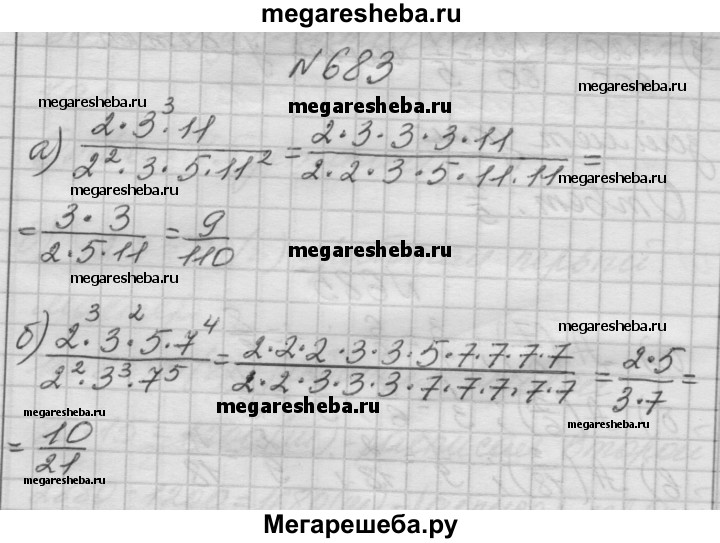 megaresheba.ru
№683
megaresheba.ru megaresheba.ru megaresheba.ru
а) (2·3³·11)/(2²·3·5·11²) = (2·3·3·3·11)/(2·2·3·5·11·11) =
megaresheba.ru megaresheba.ru
= (3·3)/(2·5·11) = 9/110
megaresheba.ru megaresheba.ru
megaresheba.ru megaresheba.ru
б) (2³·3²·5·7⁴)/(2²·3³·7⁵) = (2·2·2·3·3·5·7·7·7·7)/(2·2·3·3·3·7·7·7·7·7) = (2·5)/(3·7) =
megaresheba.ru megaresheba.ru megaresheba.ru
= 10/21
megaresheba.ru
Мегарешеба.ру